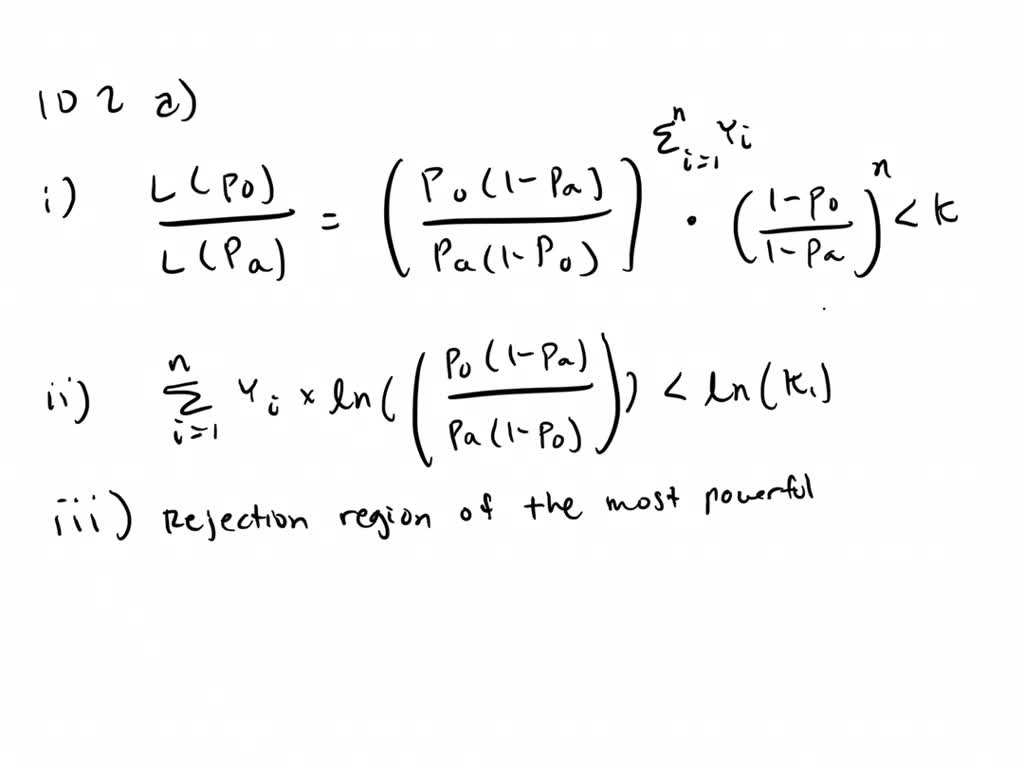 102 a)
i) L(p0)/L(Pa) = (P0(1-Pa)/Pa(1-P0))^Σ_{i=1}^n Yi · (1-P0/1-Pa)^n < K
ii) Σ_{i=1}^n Yi × ln((P0(1-Pa)/Pa(1-P0))) < ln(K1)
iii) Rejection region of the most powerful